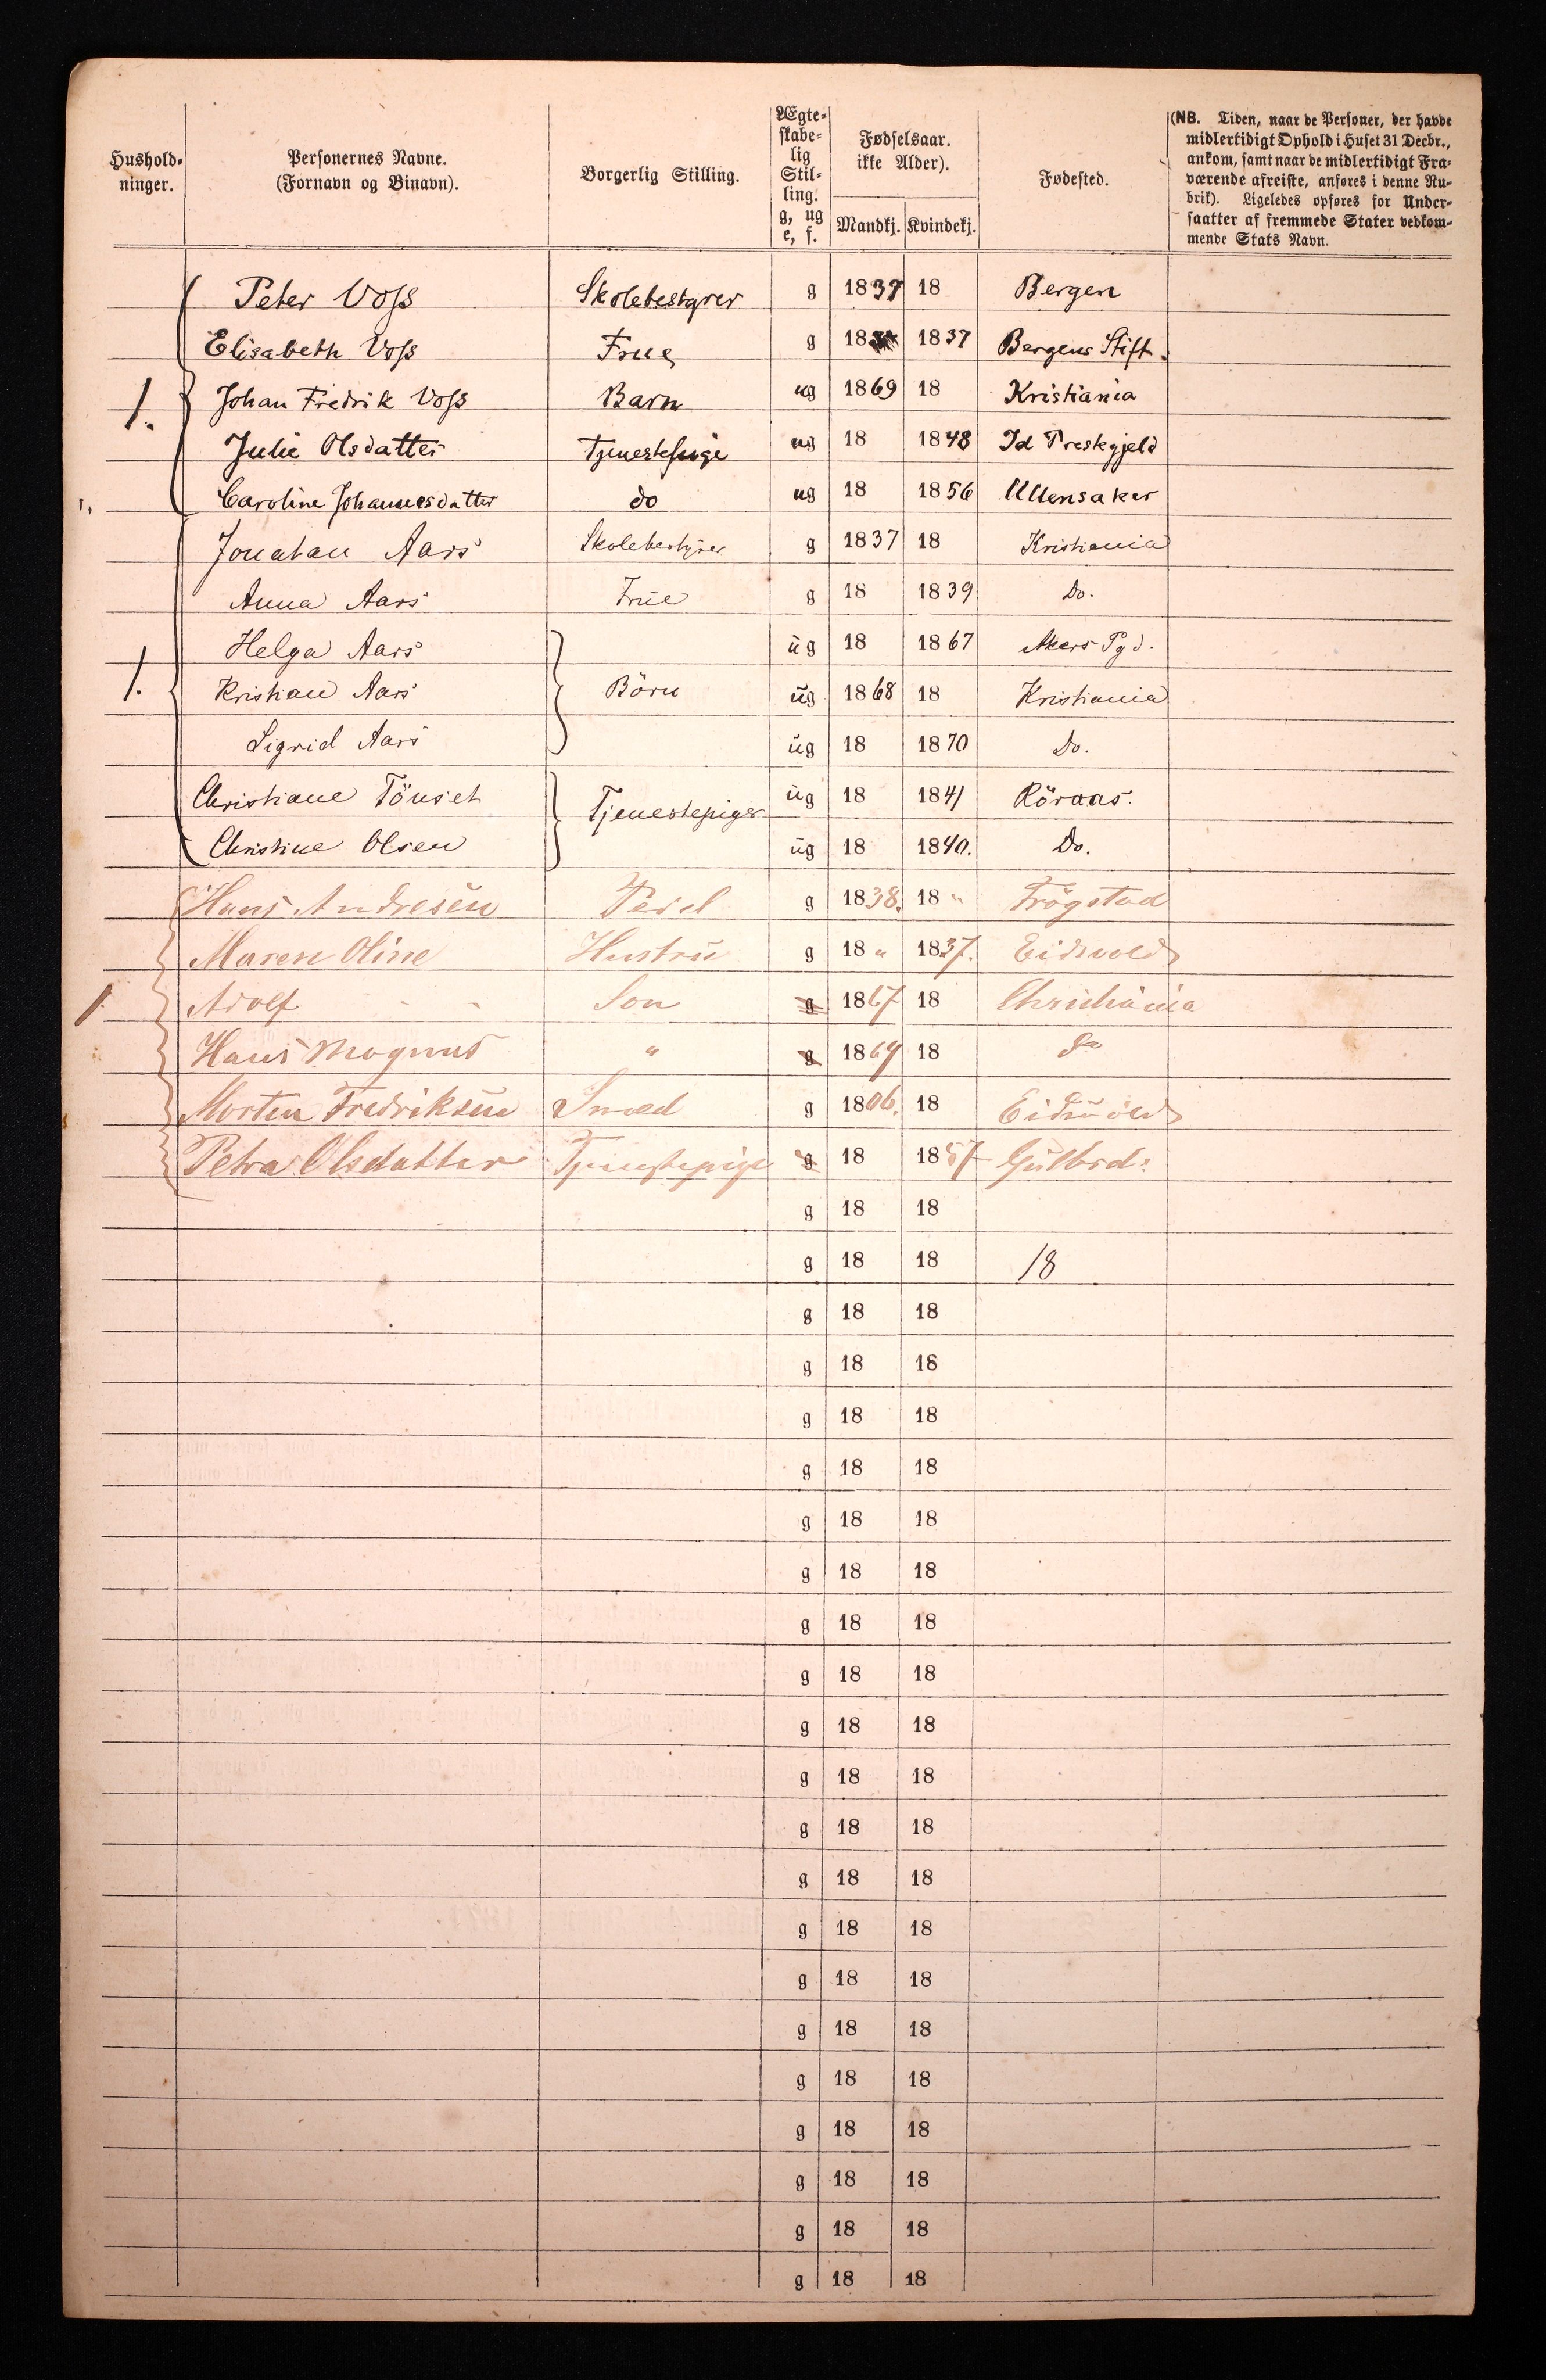 Hushold-
ninger.
Personernes Navne.
(Fornavn og Binavn).
Borgerlig Stilling.
Ægte-
skabe-
lig
Stil-
ling.
g, ug
e, f.
Fødselsaar.
ikke Alder).
Mandkj. Kvindekj.
Fødested.
(NB. Tiden, naar de Personer, der havde
midlertidigt Ophold i Huset 31 Decbr.,
ankom, samt naar de midlertidigt Fra-
værende afreiste, anføres i denne Ru-
brik). Ligeledes opføres for Under-
saatter af fremmede Stater vedkom-
mende Stats Navn.
Peter Voss Skolebestyrer g 1837 18 Bergen
Elisabeth Voss Frue g 18 1837 Bergens Stift.
1. Johan Fredrik Voss Barn ug 1869 18 Kristiania
Julie Olsdatter Tjenestepige ug 18 1848 Id Prestegjeld
1. Caroline Johannesdatter do ug 18 1856 Ullensaker
Jonatan Aars Skolebestyrer g 1837 18 Kristiania
Anna Aars Frue g 18 1839 Do.
Helga Aars ug 18 1867 Akers Pgd.
1. Kristian Aars Börn ug 1868 18 Kristiania
Sigrid Aars ug 18 1870 Do.
Christiane Tönset Tjenestepiger ug 18 1841 Röraas.
Christine Olsen ug 18 1840. Do.
Hans Andresen g 1838. 18 " Trögstad
Maren Oline Hustru g 18 " 1837. Eidsvold
1 Adolf - - Son g 1867 18 Christiania
Hans Magnus " g 1869 18 do
Morten Fredriksen Smed g 1806. 18 Eidsvold
Petra Olsdatter Tjenestepige g 18 1857 Gulbrd:
g 18 18
g 18 18 18
g 18 18
g 18 18
g 18 18
g 18 18
g 18 18
g 18 18
g 18 18
g 18 18
g 18 18
g 18 18
g 18 18
g 18 18
g 18 18
g 18 18
g 18 18
g 18 18
g 18 18
g 18 18
g 18 18
g 18 18